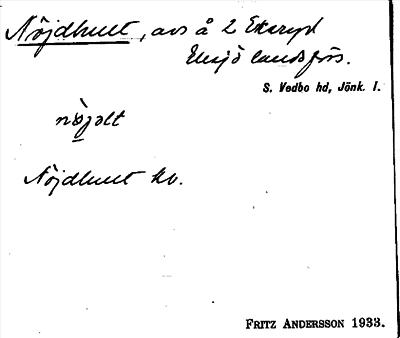 Nöjdhult, avs å 2 Ekeryd
Eksjö landsförs.
S. Vedbo hd, Jönk. l.
Nöjdhult kv.
FRITZ ANDERSSON 1933.